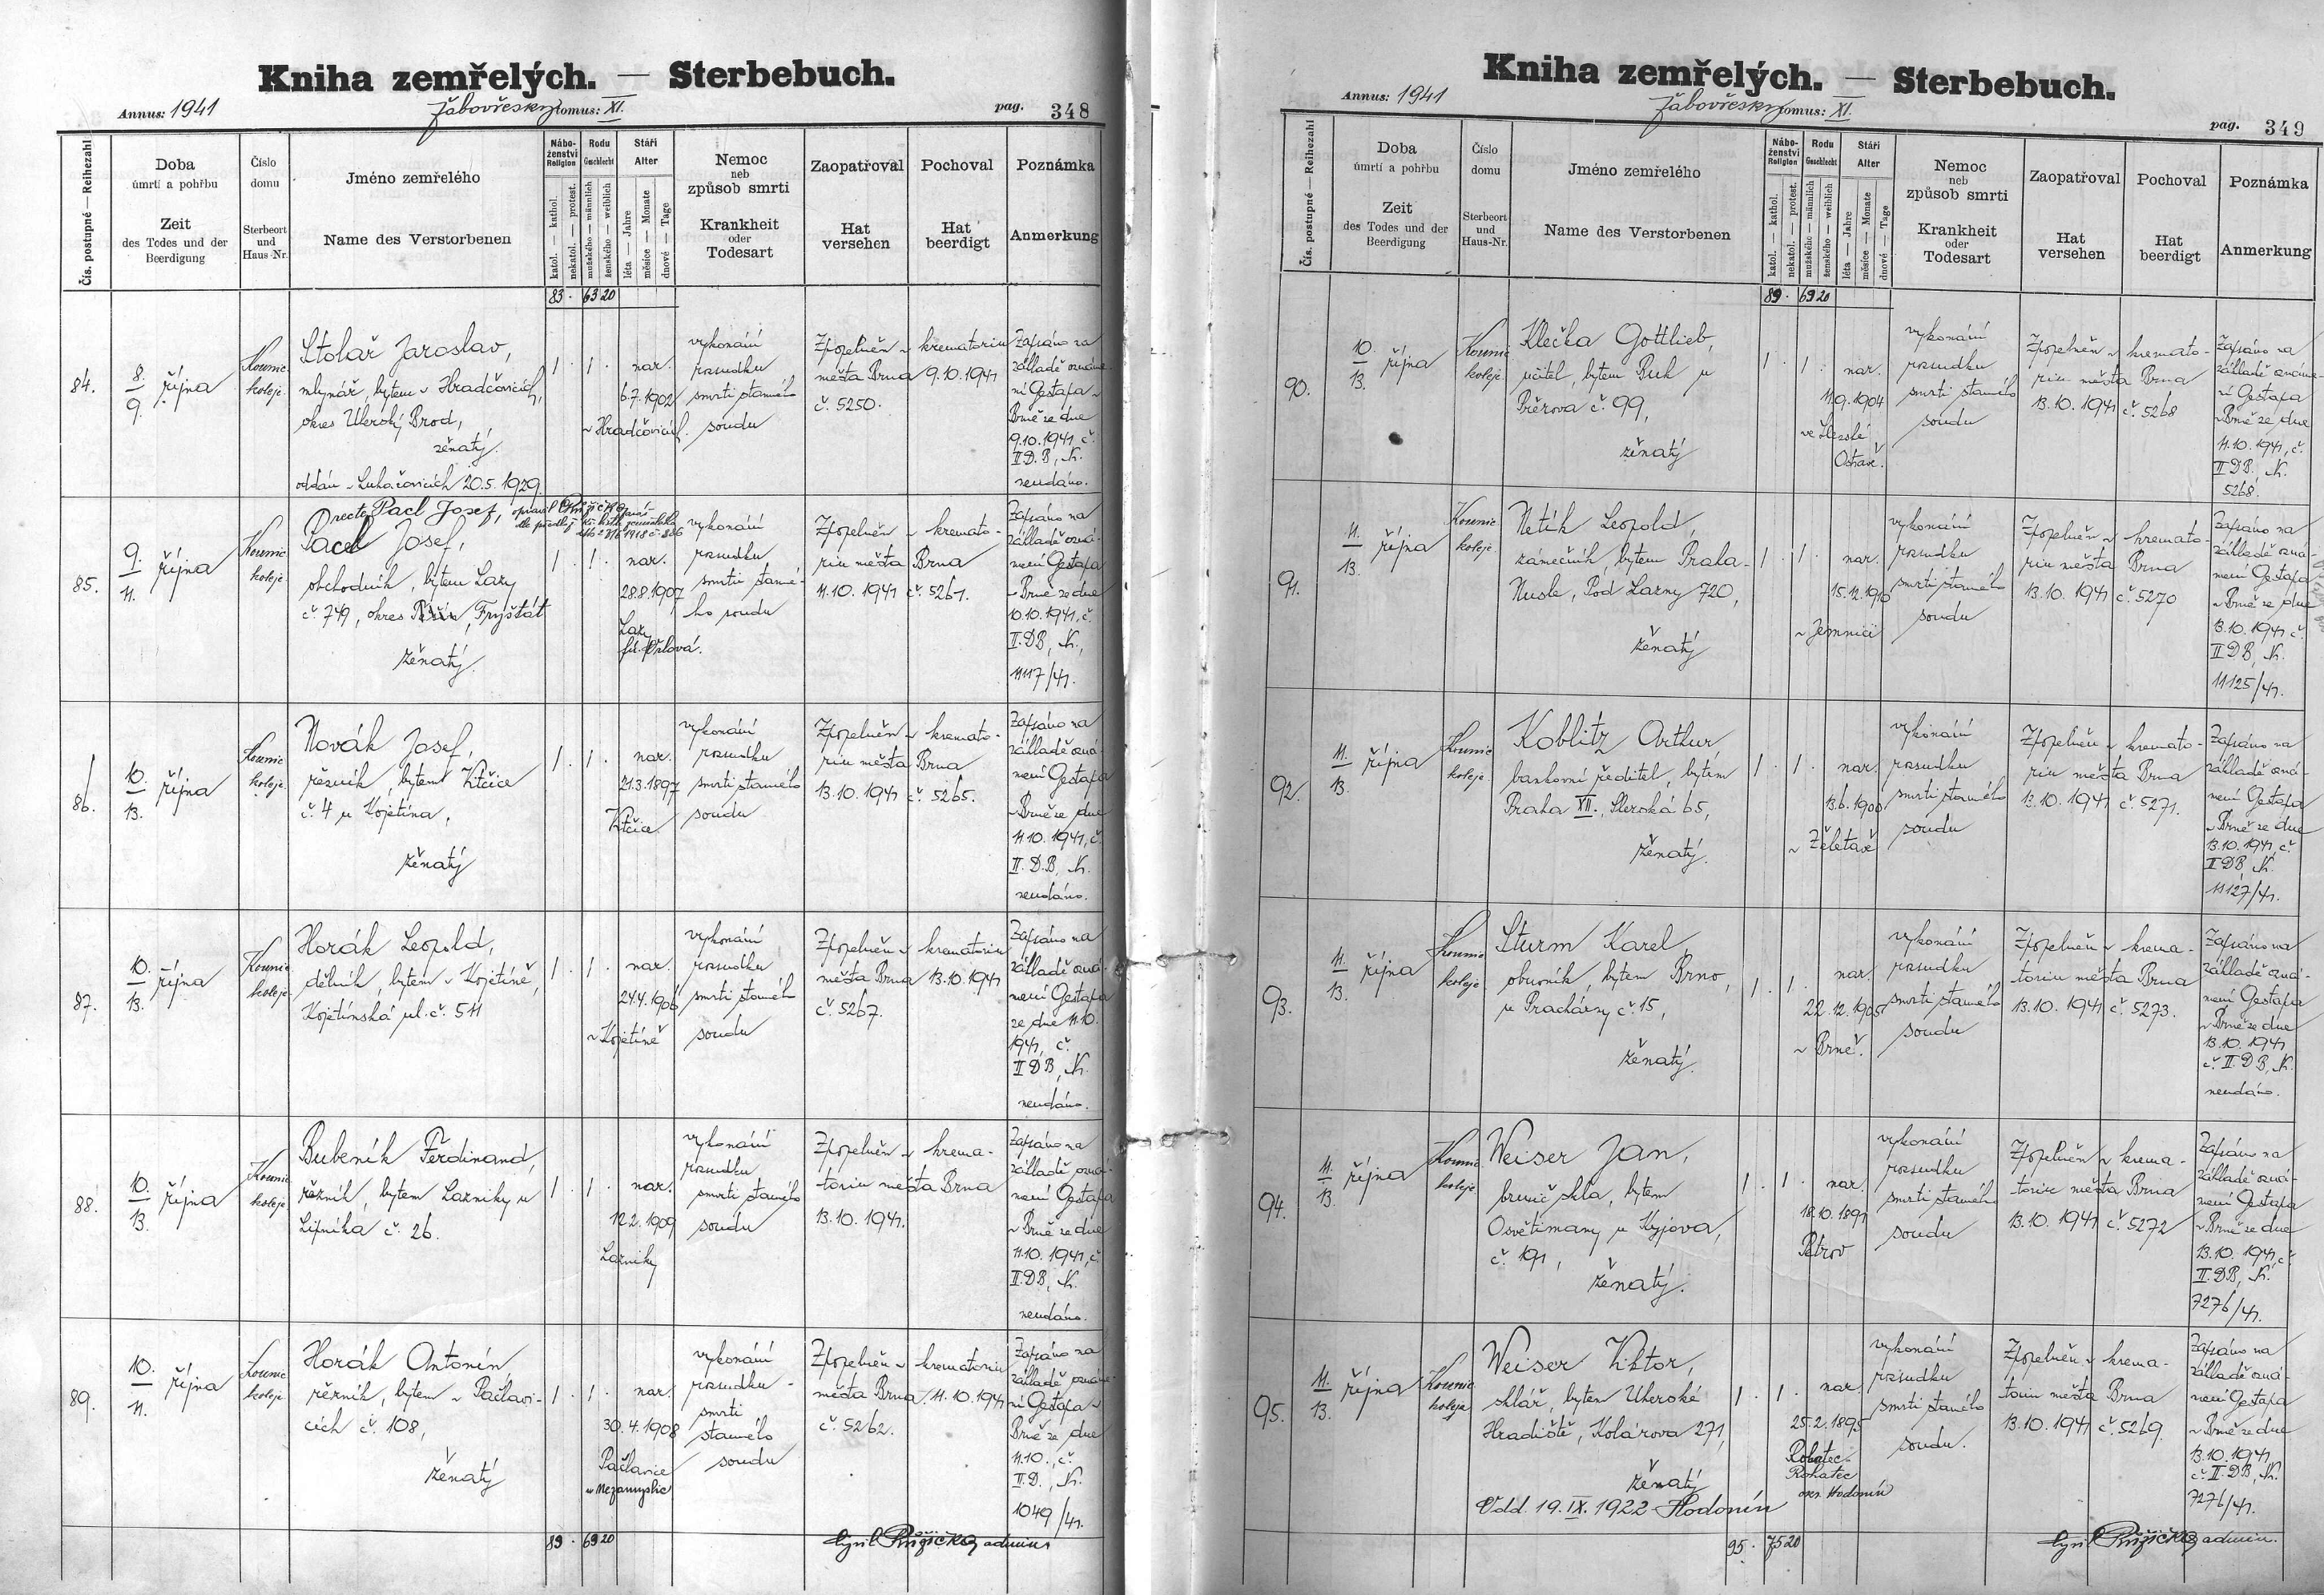 Kniha zemřelých. — Sterbebuch.
Annus: 1941
Žabovřesky Tomus: XI.
pag. 348
Čís. postupné — Reihezahl
Doba
úmrtí a pohřbu
Zeit
des Todes und der
Beerdigung
Číslo
domu
Sterbeort
und
Haus-Nr.
Jméno zemřelého
Name des Verstorbenen
Nábo-
ženství
Religion
katol. — kathol.
nekatol. — protest.
Rodu
Geschlecht
mužského — männlich
ženského — weiblich
Stáří
Alter
léta — Jahre
měsíce — Monate
dnové — Tage
Nemoc
neb
způsob smrti
Krankheit
oder
Todesart
Zaopatřoval
Hat
versehen
Pochoval
Hat
beerdigt
Poznámka
Anmerkung
83 · 63 20
84.
8.
9.
října
Kounic
koleje
Stolař Jaroslav,
mlynář, bytem v Hradčovicích,
okres Uherský Brod,
ženatý.
oddán v Luhačovicích 20.5.1929.
1 · 1 ·
nar.
6.7.1902
v Hradčovicích.
vykonání
rozsudku
smrti stanného
soudu
Zpopelněn v krematoriu
města Brna 9.10.1941
č. 5250.
Zapsáno na
základě oznáme-
ní Gestapa v
Brně ze dne
9.10.1941, č.
II D.B, N.
neudáno.
85.
9.
11.
října
Kounic
koleje
recte Pacl Josef,
Pacel Josef,
obchodník, bytem Lazy
č. 749, okres Fryštát
ženatý.
1 · 1 ·
nar.
28.8.1907
Lazy
fil. Orlová.
vykonání
rozsudku
smrti stanné-
ho soudu
Zpopelněn v kremato-
riu města Brna
11.10.1941 č. 5261.
Zapsáno na
základě ozná-
mení Gestapa
v Brně ze dne
10.10.1941, č.
II. DB, N.,
11117/41.
86.
10.
13.
října
Kounic
koleje.
Novák Josef,
řezník, bytem Křtice
č. 4 u Kojetína,
ženatý
1 · 1 ·
nar.
21.3.1897
vykonání
rozsudku
smrti stanného
soudu
Zpopelněn v kremato-
riu města Brna
13.10.1941 č. 5265.
Zapsáno na
základě ozná-
mení Gestapa
v Brně ze dne
11.10.1941, č.
II. D.B, N.
neudáno.
87.
10.
13.
října
Kounic
koleje
Horák Leopold,
dělník, bytem v Kojetíně,
Kojetínská ul. č. 511
1 · 1 ·
nar.
24.4.1906
v Kojetíně
vykonání
rozsudku
smrti stanného
soudu
Zpopelněn v krematoriu
města Brna 13.10.1941
č. 5267.
Zapsáno na
základě ozná-
mení Gestapa
ze dne 11.10.
1941, č.
II DB, N.
neudáno.
88.
10.
13.
října
Kounic
koleje
Bubeník Ferdinand,
řezník, bytem Lazníky u
Lipníka č. 26.
1 · 1 ·
nar.
12.2.1909
Lazníky
vykonání
rozsudku
smrti stanného
soudu
Zpopelněn v krema-
toriu města Brna
13.10.1941.
Zapsáno na
základě ozná-
mení Gestapa
v Brně ze dne
11.10.1941, č.
II. DB, N.
neudáno.
89.
10.
11.
října
Kounic
koleje
Horák Antonín,
řezník, bytem v Pačlavi-
cích č. 108,
ženatý
1 · 1 ·
nar.
30.4.1908
Pačlavice
u Nezamyslic
vykonání
rozsudku
smrti
stanného
soudu
Zpopelněn v krematoriu
města Brna 11.10.1941
č. 5262.
Zapsáno na
základě oznáme-
ní Gestapa v
Brně ze dne
11.10., č.
II. D., N.
1049/41.
89 · 69 20
Cyril Růžička admin.
Kniha zemřelých. — Sterbebuch.
Annus: 1941
Žabovřesky Tomus: XI.
pag. 349
Čís. postupné — Reihezahl
Doba
úmrtí a pohřbu
Zeit
des Todes und der
Beerdigung
Číslo
domu
Sterbeort
und
Haus-Nr.
Jméno zemřelého
Name des Verstorbenen
Nábo-
ženství
Religion
katol. — kathol.
nekatol. — protest.
Rodu
Geschlecht
mužského — männlich
ženského — weiblich
Stáří
Alter
léta — Jahre
měsíce — Monate
dnové — Tage
Nemoc
neb
způsob smrti
Krankheit
oder
Todesart
Zaopatřoval
Hat
versehen
Pochoval
Hat
beerdigt
Poznámka
Anmerkung
89 · 69 20
90.
10.
13.
října
Kounic
koleje
Klečka Gottlieb,
učitel, bytem Buk u
Přerova č. 99,
ženatý
1 · 1 ·
nar.
11.9.1904
ve Slezské
Ostravě.
vykonání
rozsudku
smrti stanného
soudu
Zpopelněn v kremato-
riu města Brna
13.10.1941 č. 5268
Zapsáno na
základě oznáme-
ní Gestapa
v Brně ze dne
11.10.1941, č.
II DB, N.
5268.
91.
11.
13.
října
Kounic
koleje.
Netík Leopold,
zámečník, bytem Praha-
Nusle, Pod Lazny 720,
ženatý
1 · 1 ·
nar.
15.12.1910
v Jemnici
vykonání
rozsudku
smrti stanného
soudu
Zpopelněn v kremato-
riu města Brna
13.10.1941 č. 5270
Zapsáno na
základě ozná-
mení Gestapa
v Brně ze dne
13.10.1941 č.
II DB, N.
11125/41.
92.
11.
13.
října
Kounic
koleje.
Koblitz Arthur
bankovní ředitel, bytem
Praha XII., Slezská 65,
ženatý.
1 · 1 ·
nar.
13.6.1900
v Želetavě
vykonání
rozsudku
smrti stanného
soudu
Zpopelněn v kremato-
riu města Brna
13.10.1941 č. 5271.
Zapsáno na
základě ozná-
mení Gestapa
v Brně ze dne
13.10.1941, č.
II DB, N.
11127/41.
93.
11.
13.
října
Kounic
koleje
Sturm Karel,
obuvník, bytem Brno,
u Prachárny č. 15,
ženatý.
1 · 1 ·
nar.
22.12.1905
v Brně.
vykonání
rozsudku
smrti stanného
soudu
Zpopelněn v krema-
toriu města Brna
13.10.1941 č. 5273.
Zapsáno na
základě ozná-
mení Gestapa
v Brně ze dne
13.10.1941
č. II. DB, N.
neudáno.
94.
11.
13.
října
Kounic
koleje
Weiser Jan,
brusič skla, bytem
Osvětimany u Kyjova,
č. 191,
ženatý.
1 · 1 ·
nar.
18.10.1891
Petrov
vykonání
rozsudku
smrti stanného
soudu
Zpopelněn v krema-
toriu města Brna
13.10.1941 č. 5272
Zapsáno na
základě ozná-
mení Gestapa
v Brně ze dne
13.10.1941, č.
II. DB, N.
7276/41.
95.
11.
13.
října
Kounic
koleje
Weiser Viktor,
sklář, bytem Uherské
Hradiště, Kolárova 271,
ženatý
Odd. 19.IX.1922 Hodonín
1 · 1 ·
nar.
25.2.1895
Rohatec
okr. Hodonín
vykonání
rozsudku
smrti stanného
soudu.
Zpopelněn v krema-
toriu města Brna
13.10.1941 č. 5269.
Zapsáno na
základě ozná-
mení Gestapa
v Brně ze dne
13.10.1941
č. II. DB, N.
7276/41.
95 · 75 20
Cyril Růžička admin.